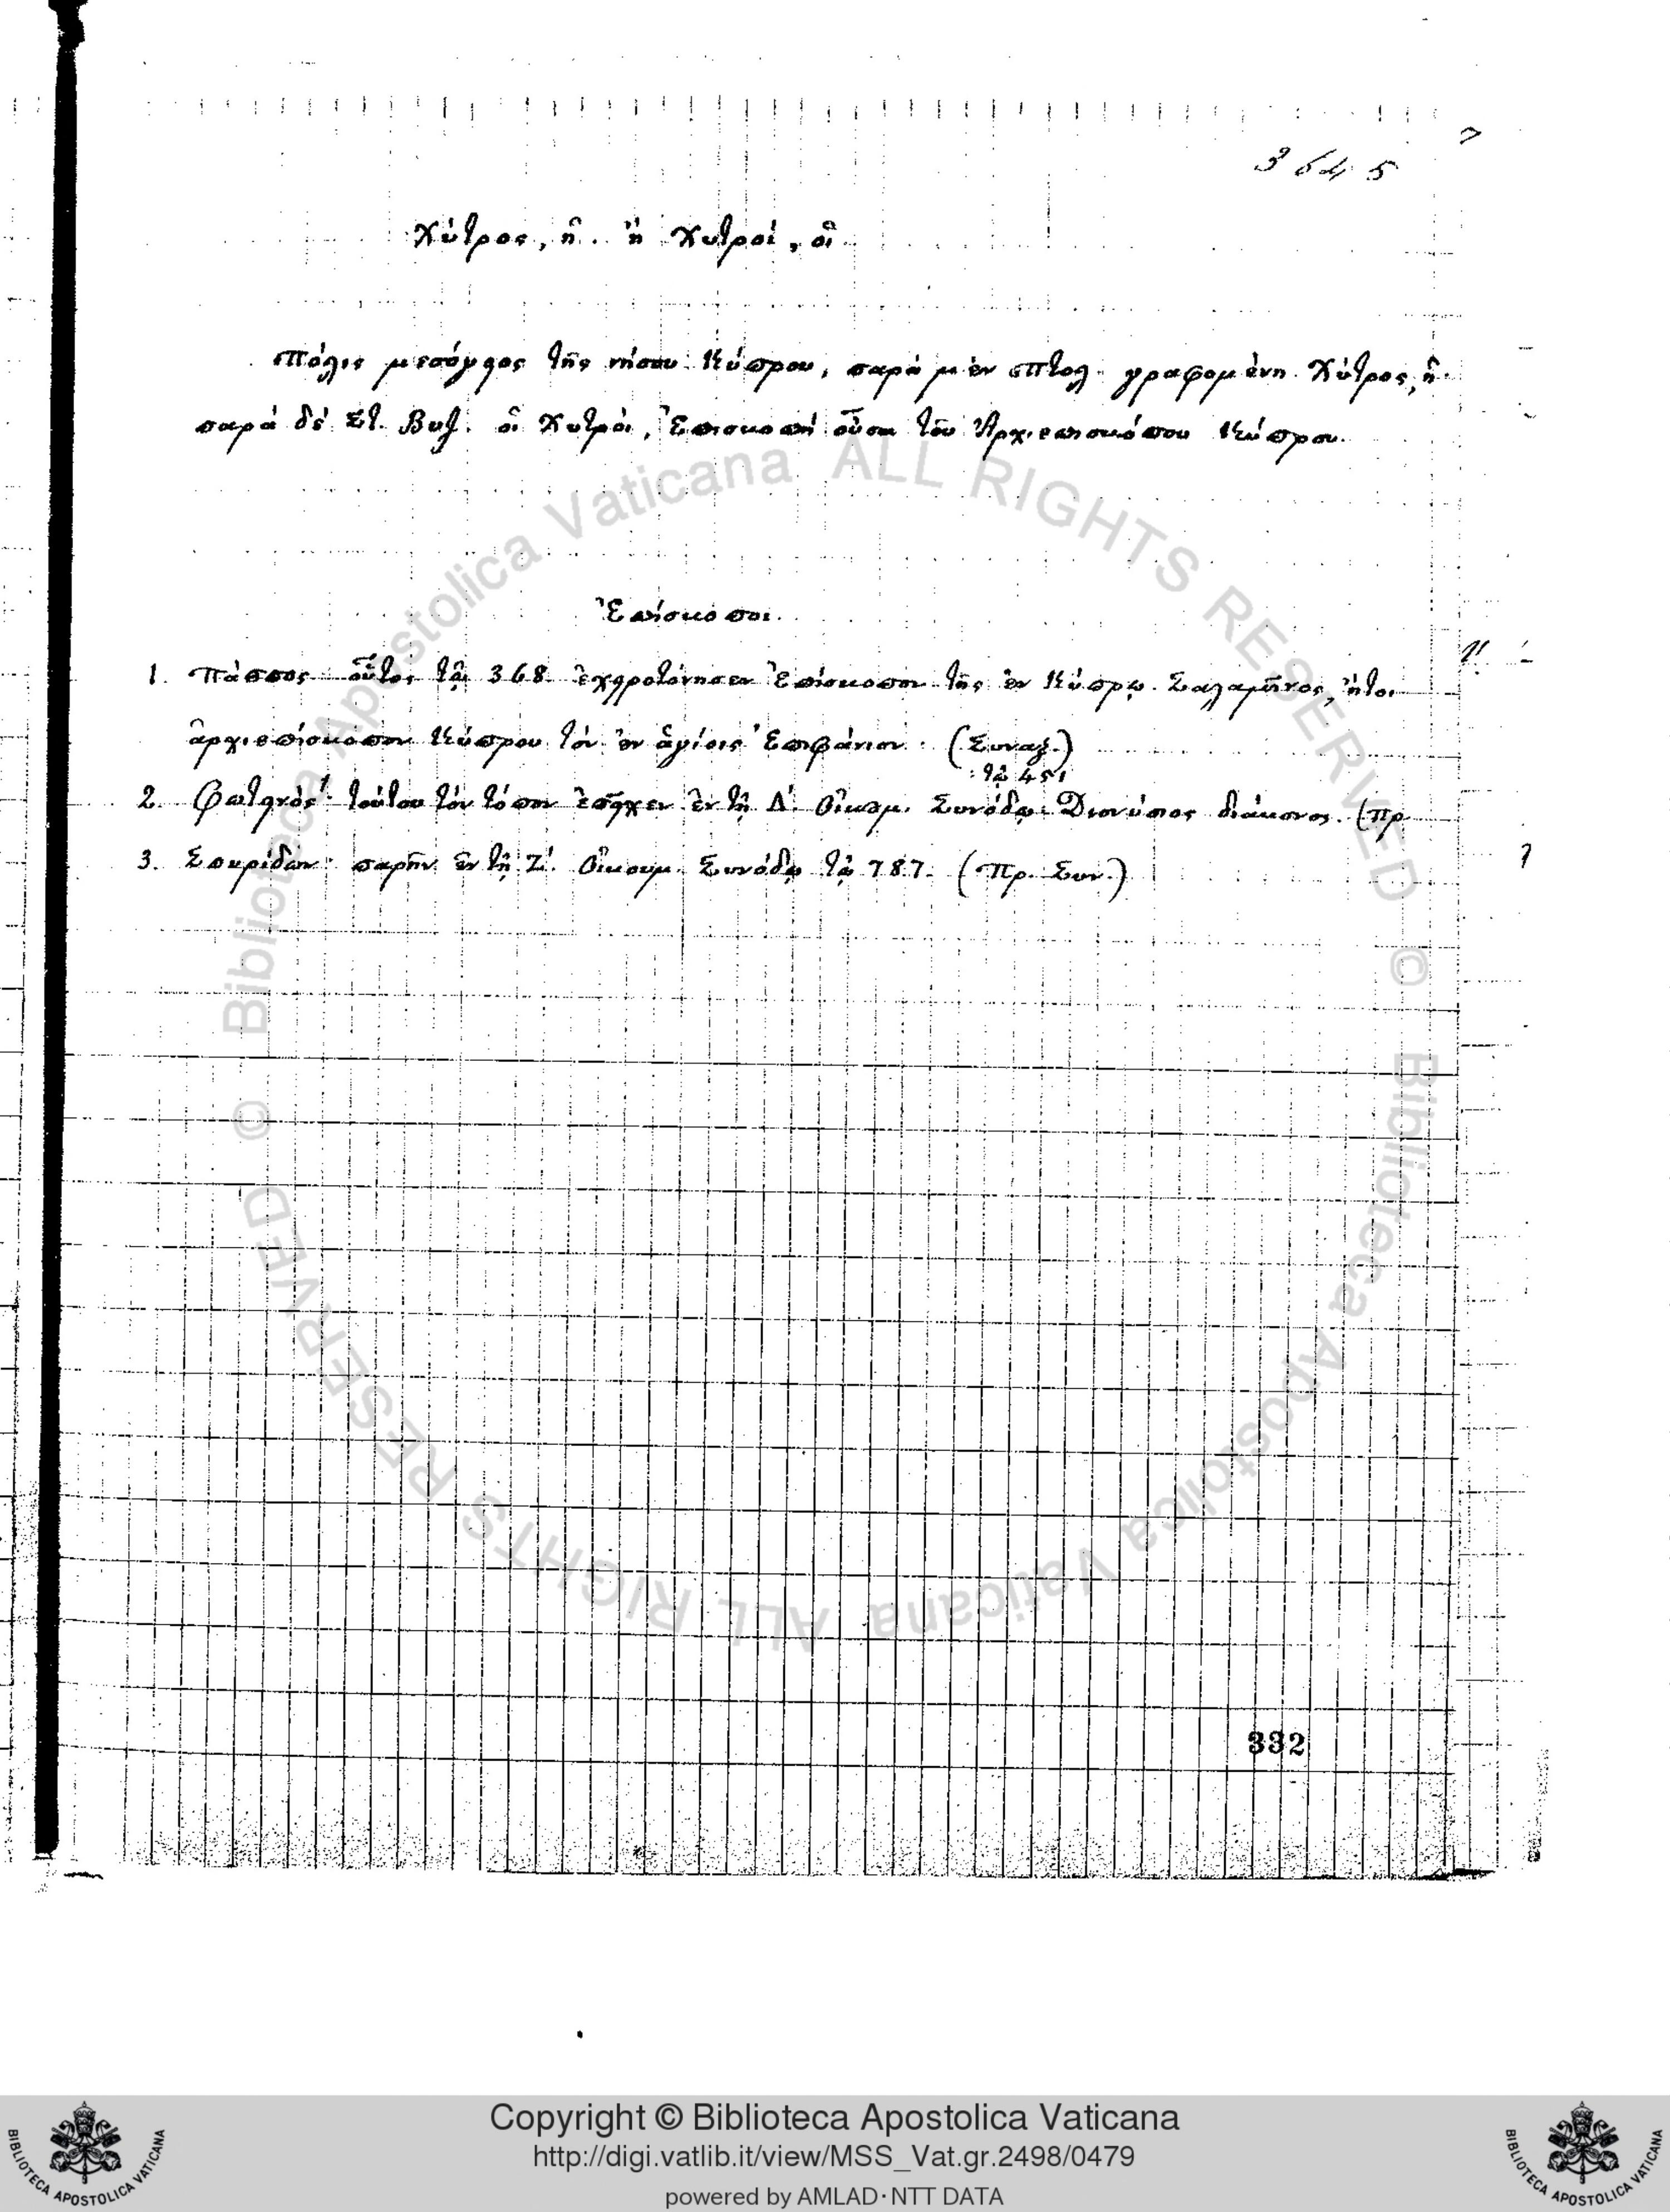 3645
Χύτρος, ἡ. ἢ Χυτροί, οἱ
Πόλις μεσόγειος τῆς νήσου Κύπρου, παρὰ μὲν Πτολ. γραφομένη Χύτρος, ἡ.
παρὰ δὲ Στ. Βυζ. οἱ Χυτροὶ, Ἐπισκοπὴ οὖσα τοῦ Ἀρχιεπισκόπου Κύπρου.
Ἐπίσκοποι.
1. Πάππος οὗτος τῷ 368 ἐχειροτόνησεν Ἐπίσκοπον τῆς ἐν Κύπρῳ Σαλαμῖνος, ἤτοι
ἀρχιεπίσκοπον Κύπρου τὸν ἐν ἁγίοις Ἐπιφάνιον. (Συναξ.)
τῷ 451
2. Φωτεινὸς τούτου τὸν τόπον ἐπεῖχεν ἐν τῇ Δ΄. Οἰκουμ. Συνόδῳ Διονύσιος διάκονος. (Πρ
3. Σπυρίδων παρῆν ἐν τῇ Ζ΄. Οἰκουμ. Συνόδῳ τῷ 787. (Πρ. Συν.)
332
Biblioteca Apostolica Vaticana ALL RIGHTS RESERVED ©
Biblioteca Apostolica Vaticana ALL RIGHTS RESERVED ©
Copyright © Biblioteca Apostolica Vaticana
http://digi.vatlib.it/view/MSS_Vat.gr.2498/0479
powered by AMLAD·NTT DATA
BIBLIOTECA APOSTOLICA VATICANA
BIBLIOTECA APOSTOLICA VATICANA